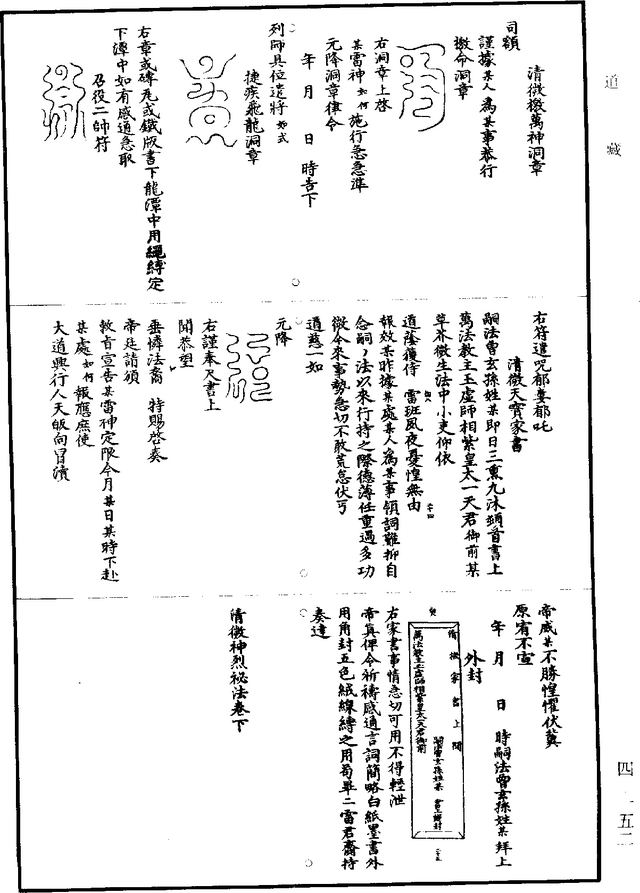 道藏
清微檄萬神洞章
司額
謹據某人為某事恭行
檄命洞章
右洞章上啓
某雷神如何施行急急準
元降洞章律令
年 月 日 時告下
列師具位遣將如式
捷疾飛龍洞章
右章或磚瓦或鐵版書下龍潭中用繩縛定
下潭中如有感通急取
乃役二帥符
右符遣咒郁婁郁吒
清微天寶家書
嗣法曾玄孫姓某即日三熏九沐頓首書上
萬法教主玉虛師相紫皇太一天君御前某
草芥微生法中小吏仰依
道蔭獲侍 雷班夙夜憂惶無由
報效某昨據某處某人為某事領詞難抑自
合嗣法以來行持之際德薄任重過多功
微今來事勢急切不敢荒怠伏丐
道慈一如
元降
右謹奉尺書上
聞恭望
垂憐法裔 特賜啓奏
帝廷請頒
敕旨宣告某雷神定限今月某日某時下赴
某處如何報應庶使
大道興行人天皈向冒瀆
帝威某不勝惶懼伏冀
原宥不宣
年 月 日 時嗣法曾玄孫姓某拜上
外封
清微家書上聞
嗣法曾玄孫姓某 書上謹封
萬法教主玉虛師相紫皇太一天君御前
右家書事情急切可用不得輕泄
帝真俾令祈禱感通言詞簡略白紙墨書外
用角封五色絨線縛之用苟畢二雷君齎持
奏達
清微神烈祕法卷下
四一五二